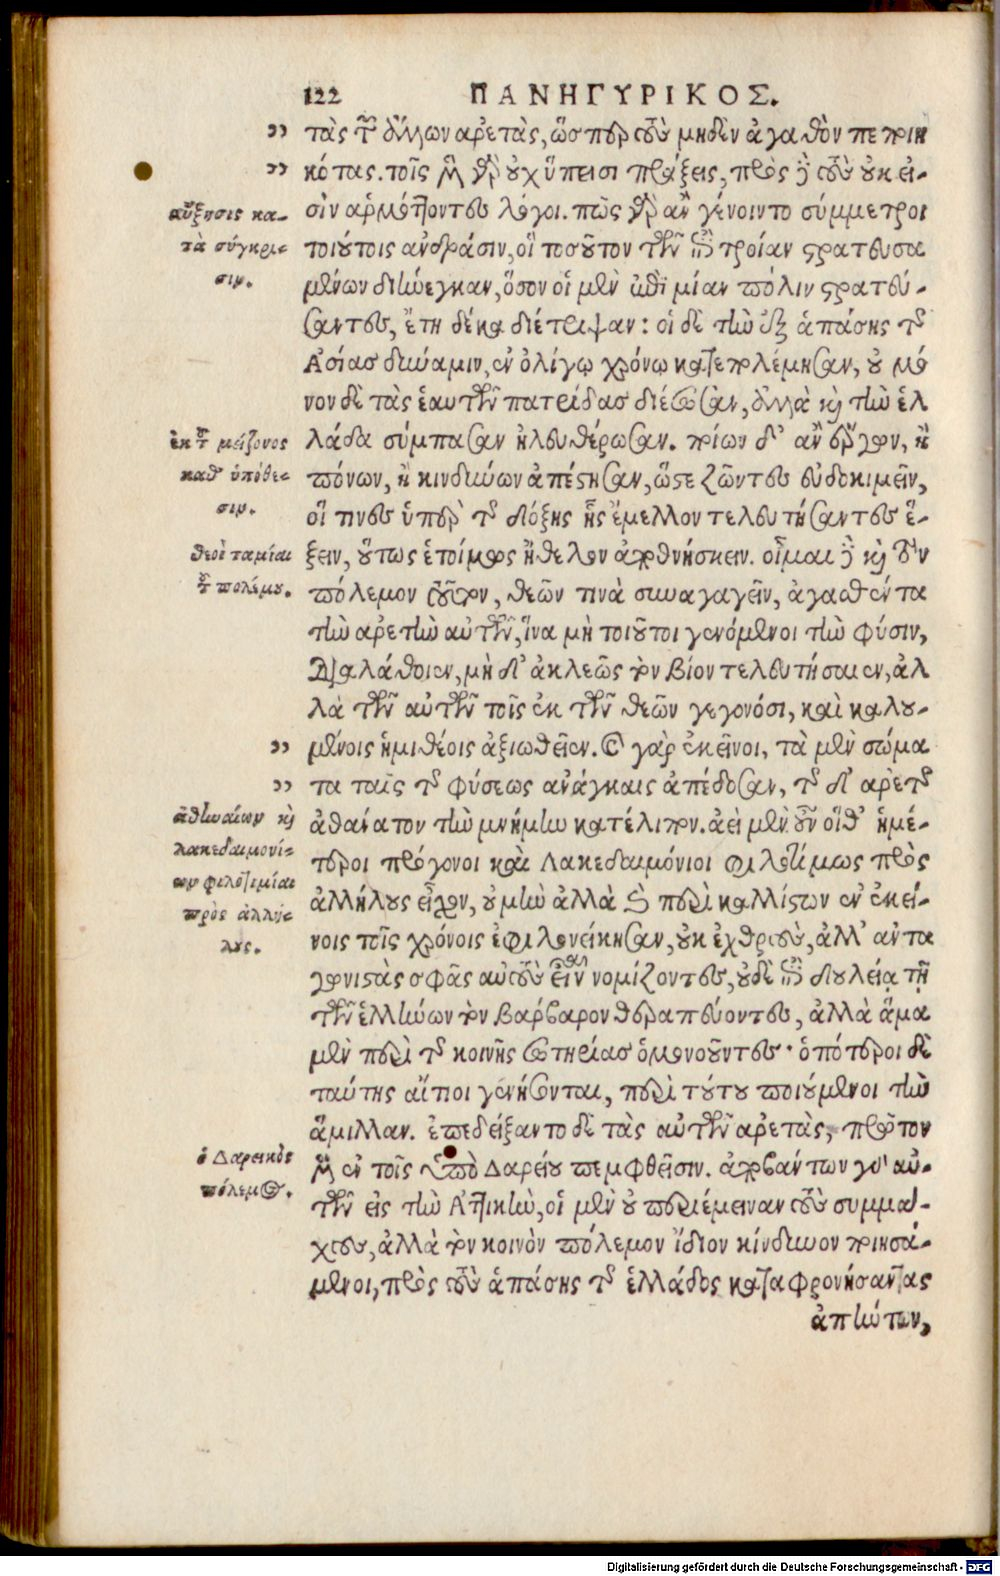 122 ΠΑΝΗΓΥΡΙΚΟΣ.
τὰς τῶν ἄλλων ἀρετὰς, ὥσπερ τοὺς μηδὲν ἀγαθὸν πεποιη
κότας. τοῖς μὲν γὰρ οὐχ ὕπεισι πράξεις, πρὸς δὲ τοὺς οὐκ εἰ-
σὶν ἁρμόττοντες λόγοι. πῶς γὰρ ἂν γένοιντο σύμμετροι
τοιούτοις ἀνδράσιν, οἳ τοσοῦτον τῶν ἐπὶ τροίαν στρατευσα
μένων διήνεγκαν, ὅσον οἱ μὲν ἐπὶ μίαν πόλιν στρατεύ-
σαντες, ἔτη δέκα διέτριψαν: οἱ δὲ τὴν ἐξ ἁπάσης τῆς
Ἀσίας δύναμιν, ἐν ὀλίγῳ χρόνῳ κατεπολέμησαν, οὐ μό
νον δὲ τὰς ἑαυτῶν πατρίδας διέσωσαν, ἀλλὰ καὶ τὴν ἑλ
λάδα σύμπασαν ἠλευθέρωσαν. ποίων δ' ἂν ἔργων, ἢ
πόνων, ἢ κινδύνων ἀπέστησαν, ὥστε ζῶντες εὐδοκιμεῖν,
οἵ τινες ὑπὲρ τῆς δόξης ἧς ἔμελλον τελευτήσαντες ἕ-
ξειν, οὕτως ἑτοίμως ἤθελον ἀποθνήσκειν. οἶμαι δὲ καὶ τὸν
πόλεμον τοῦτον, θεῶν τινὰ συναγαγεῖν, ἀγασθέντα
τὴν ἀρετὴν αὐτῶν, ἵνα μὴ τοιοῦτοι γενόμενοι τὴν φύσιν,
διαλάθοιεν, μὴ δ' ἀκλεῶς τὸν βίον τελευτήσαιεν, ἀλ
λὰ τῶν αὐτῶν τοῖς ἐκ τῶν θεῶν γεγονόσι, καὶ καλου-
μένοις ἡμιθέοις ἀξιωθεῖεν. καὶ γὰρ ἐκεῖνοι, τὰ μὲν σώμα
τα ταῖς τῆς φύσεως ἀνάγκαις ἀπέδοσαν, τῆς δ' ἀρετῆς
ἀθάνατον τὴν μνήμην κατέλιπον. ἀεὶ μὲν οὖν οἵθ' ἡμέ-
τεροι πρόγονοι καὶ Λακεδαιμόνιοι φιλοτίμως πρὸς
ἀλλήλους εἶχον, οὐ μὴν ἀλλὰ καὶ περὶ καλλίστων ἐν ἐκεί-
νοις τοῖς χρόνοις ἐφιλονείκησαν, οὐκ ἐχθροὺς, ἀλλ' ἀντα
γωνιστὰς σφᾶς αὐτοὺς εἶναι νομίζοντες, οὐδὲ ἐπὶ δουλείᾳ τῇ
τῶν ἑλλήνων τὸν βάρβαρον θεραπεύοντες, ἀλλὰ ἅμα
μὲν περὶ τῆς κοινῆς σωτηρίας ὁμονοοῦντες· ὁπότεροι δὲ
ταύτης αἴτιοι γενήσονται, περὶ τούτου ποιούμενοι τὴν
ἅμιλλαν. ἐπεδείξαντο δὲ τὰς αὐτῶν ἀρετὰς, πρῶτον
μὲν ἐν τοῖς ὑπὸ Δαρείου πεμφθεῖσιν. ἀποβάντων γὰρ αὐ-
τῶν εἰς τὴν Ἀττικὴν, οἱ μὲν οὐ περιέμειναν τοὺς συμμά-
χους, ἀλλὰ τὸν κοινὸν πόλεμον ἴδιον κίνδυνον ποιησά-
μενοι, πρὸς τοὺς ἁπάσης τῆς ἑλλάδος καταφρονήσαντας
ἀπήντων,
αὔξησις κα-
τὰ σύγκρι-
σιν.
ἐκ τοῦ μείζονος
καθ' ὑπόθε-
σιν.
θεοὶ ταμίαι
τοῦ πολέμου.
ἀθηναίων καὶ
λακεδαιμονί-
ων φιλοτιμίαι
πρὸς ἀλλή-
λους.
ὁ Δαρεικὸς
πόλεμος.
Digitalisierung gefördert durch die Deutsche Forschungsgemeinschaft - DFG